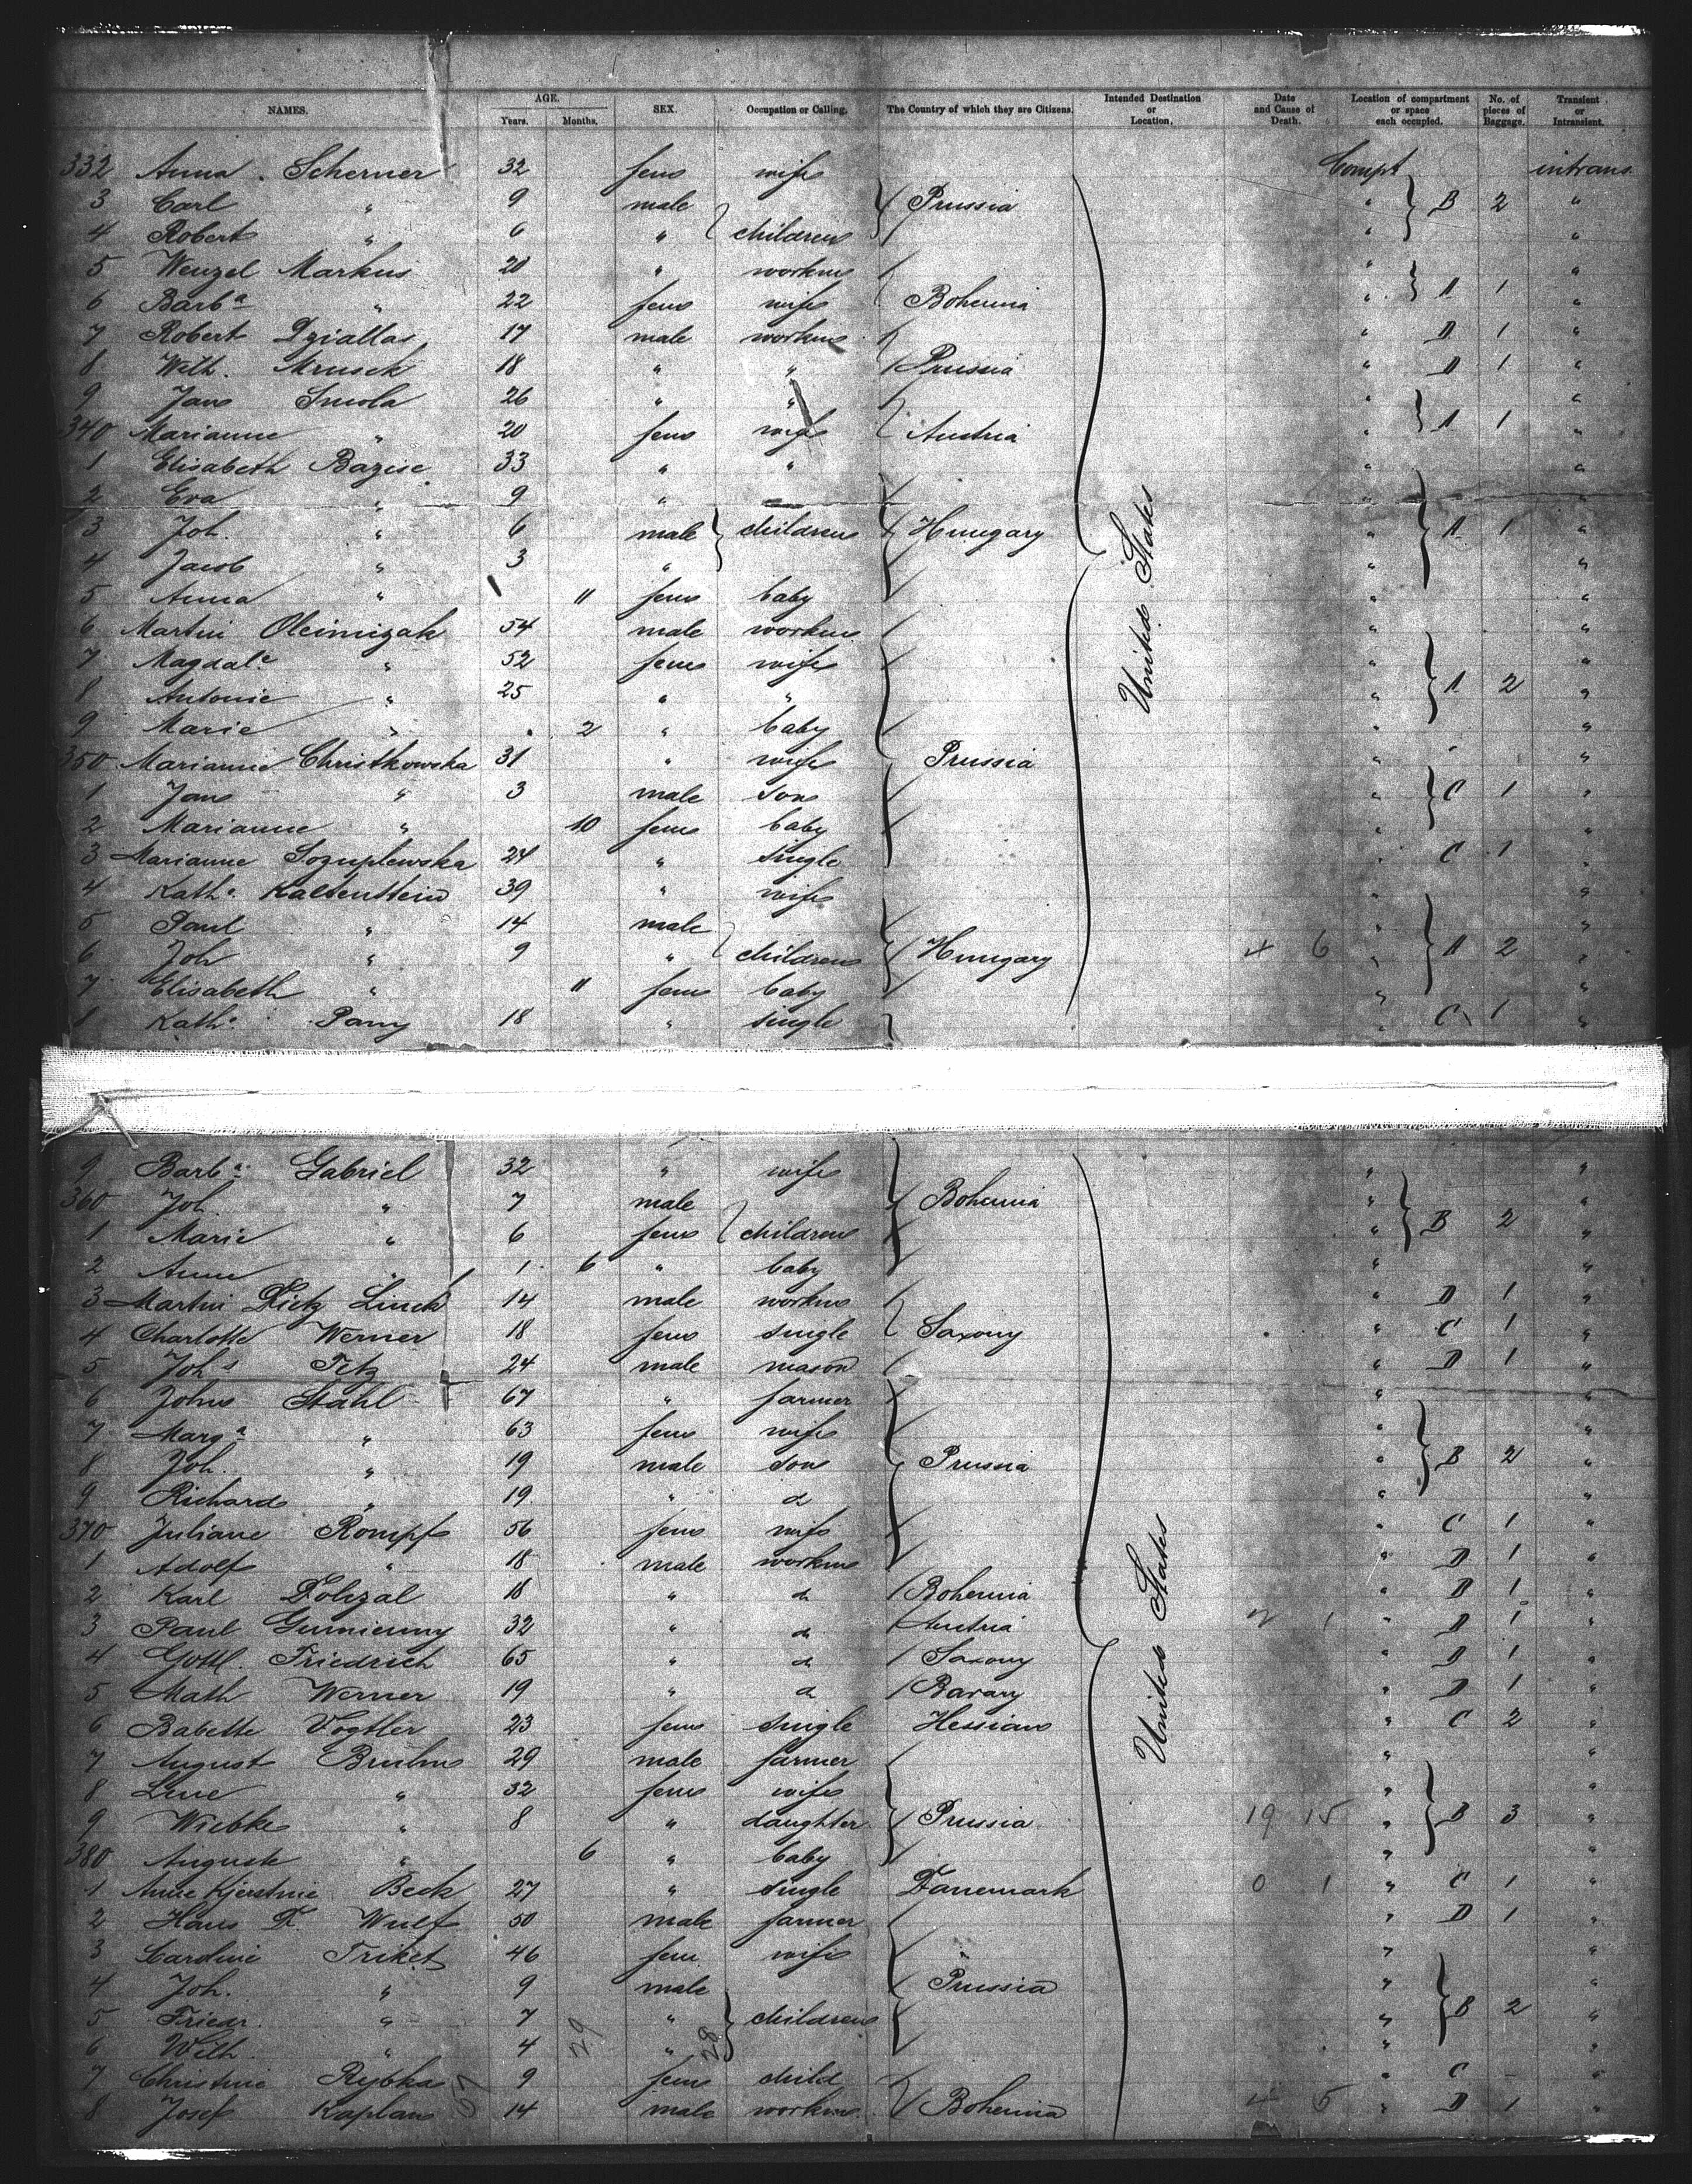 NAMES. AGE. Years. Months. SEX. Occupation or Calling. The Country of which they are Citizens. Intended Destination or Location. Date and Cause of Death. Location of compartment or space each occupied. No. of pieces of Baggage. Transient or Intransient.
332 Anna Scherner 32 fem wife Compt intrans
3 Carl " 9 male Prussia " B 2 "
4 Robert " 6 " children " "
5 Wenzel Markus 20 " workm " "
6 Barba " 22 fem wife Bohemia " A 1 "
7 Robert Dziallas 17 male workm " D 1 "
8 Wilh. Mrusek 18 " " Prussia " D 1 "
9 Jan Smola 26 " " "
340 Marianne " 20 fem wife Austria " A 1 "
1 Elisabeth Bazise 33 " " " "
2 Eva " 9 " "
3 Joh. " 6 male children Hungary " A 1 "
4 Jacob " 3 " " "
5 Anna " 11 fem baby " "
6 Martin Oleinizak 54 male workm " "
7 Magdale " 52 fem wife " "
8 Antonie " 25 " " " A 2 "
9 Marie " 2 " baby " "
350 Marianne Christkowska 31 " wife Prussia " "
1 Jan " 3 male son " C 1 "
2 Marianne " 10 fem baby " "
3 Marianne 24 " single " C 1 "
4 Katha Kaltenstein 39 " wife " "
5 Paul " 14 male " "
6 Joh " 9 " children Hungary 4 6 " A 2 "
7 Elisabeth " 11 fem baby " "
8 Katha Pany 18 " single " C 1 "
United States
9 Barba Gabriel 32 " wife " "
360 Joh. " 7 male Bohemia " "
1 Marie " 6 fem children " B 2 "
2 Anna " 1 6 " baby " "
3 Martin Dietz Linck 14 male workm " D 1 "
4 Charlotte Werner 18 fem single Saxony " C 1 "
5 Johs Fetz 24 male mason " D 1 "
6 Johns Stahl 67 " farmer " "
7 Marga " 63 fem wife " "
8 Joh. " 19 male son Prussia " B 2 "
9 Richard " 19 " do " "
370 Juliane Rompf 56 fem wife " C 1 "
1 Adolf " 18 male workm " D 1 "
2 Karl Dolezal 18 " do Bohemia " D 1 "
3 Paul Gumienny 32 " do Austria 2 1 " D 1 "
4 Gottl. Friedrich 65 " do Saxony " D 1 "
5 Math Werner 19 " do Bavary " D 1 "
6 Babette Vogtler 23 fem single Hessian " C 2 "
7 August Bruhn 29 male farmer " "
8 Lene " 32 fem wife " "
9 Wiebke " 8 " daughter Prussia 19 15 " B 3 "
380 Auguste " 6 " baby " "
1 Anne Kjerstine Beck 27 " single Danemark 0 1 " C 1 "
2 Hans D. Wulf 50 male farmer " D 1 "
3 Caroline Triket 46 fem wife " "
4 Joh. " 9 male Prussia " "
5 Friedr. " 7 " children " B 2 "
6 Wilh. " 4 29 " 28 " "
7 Christine Rybka 9 fem child " C "
8 Josef Kaplan 67 14 male workm Bohemia 4 5 " D 1 "
United States